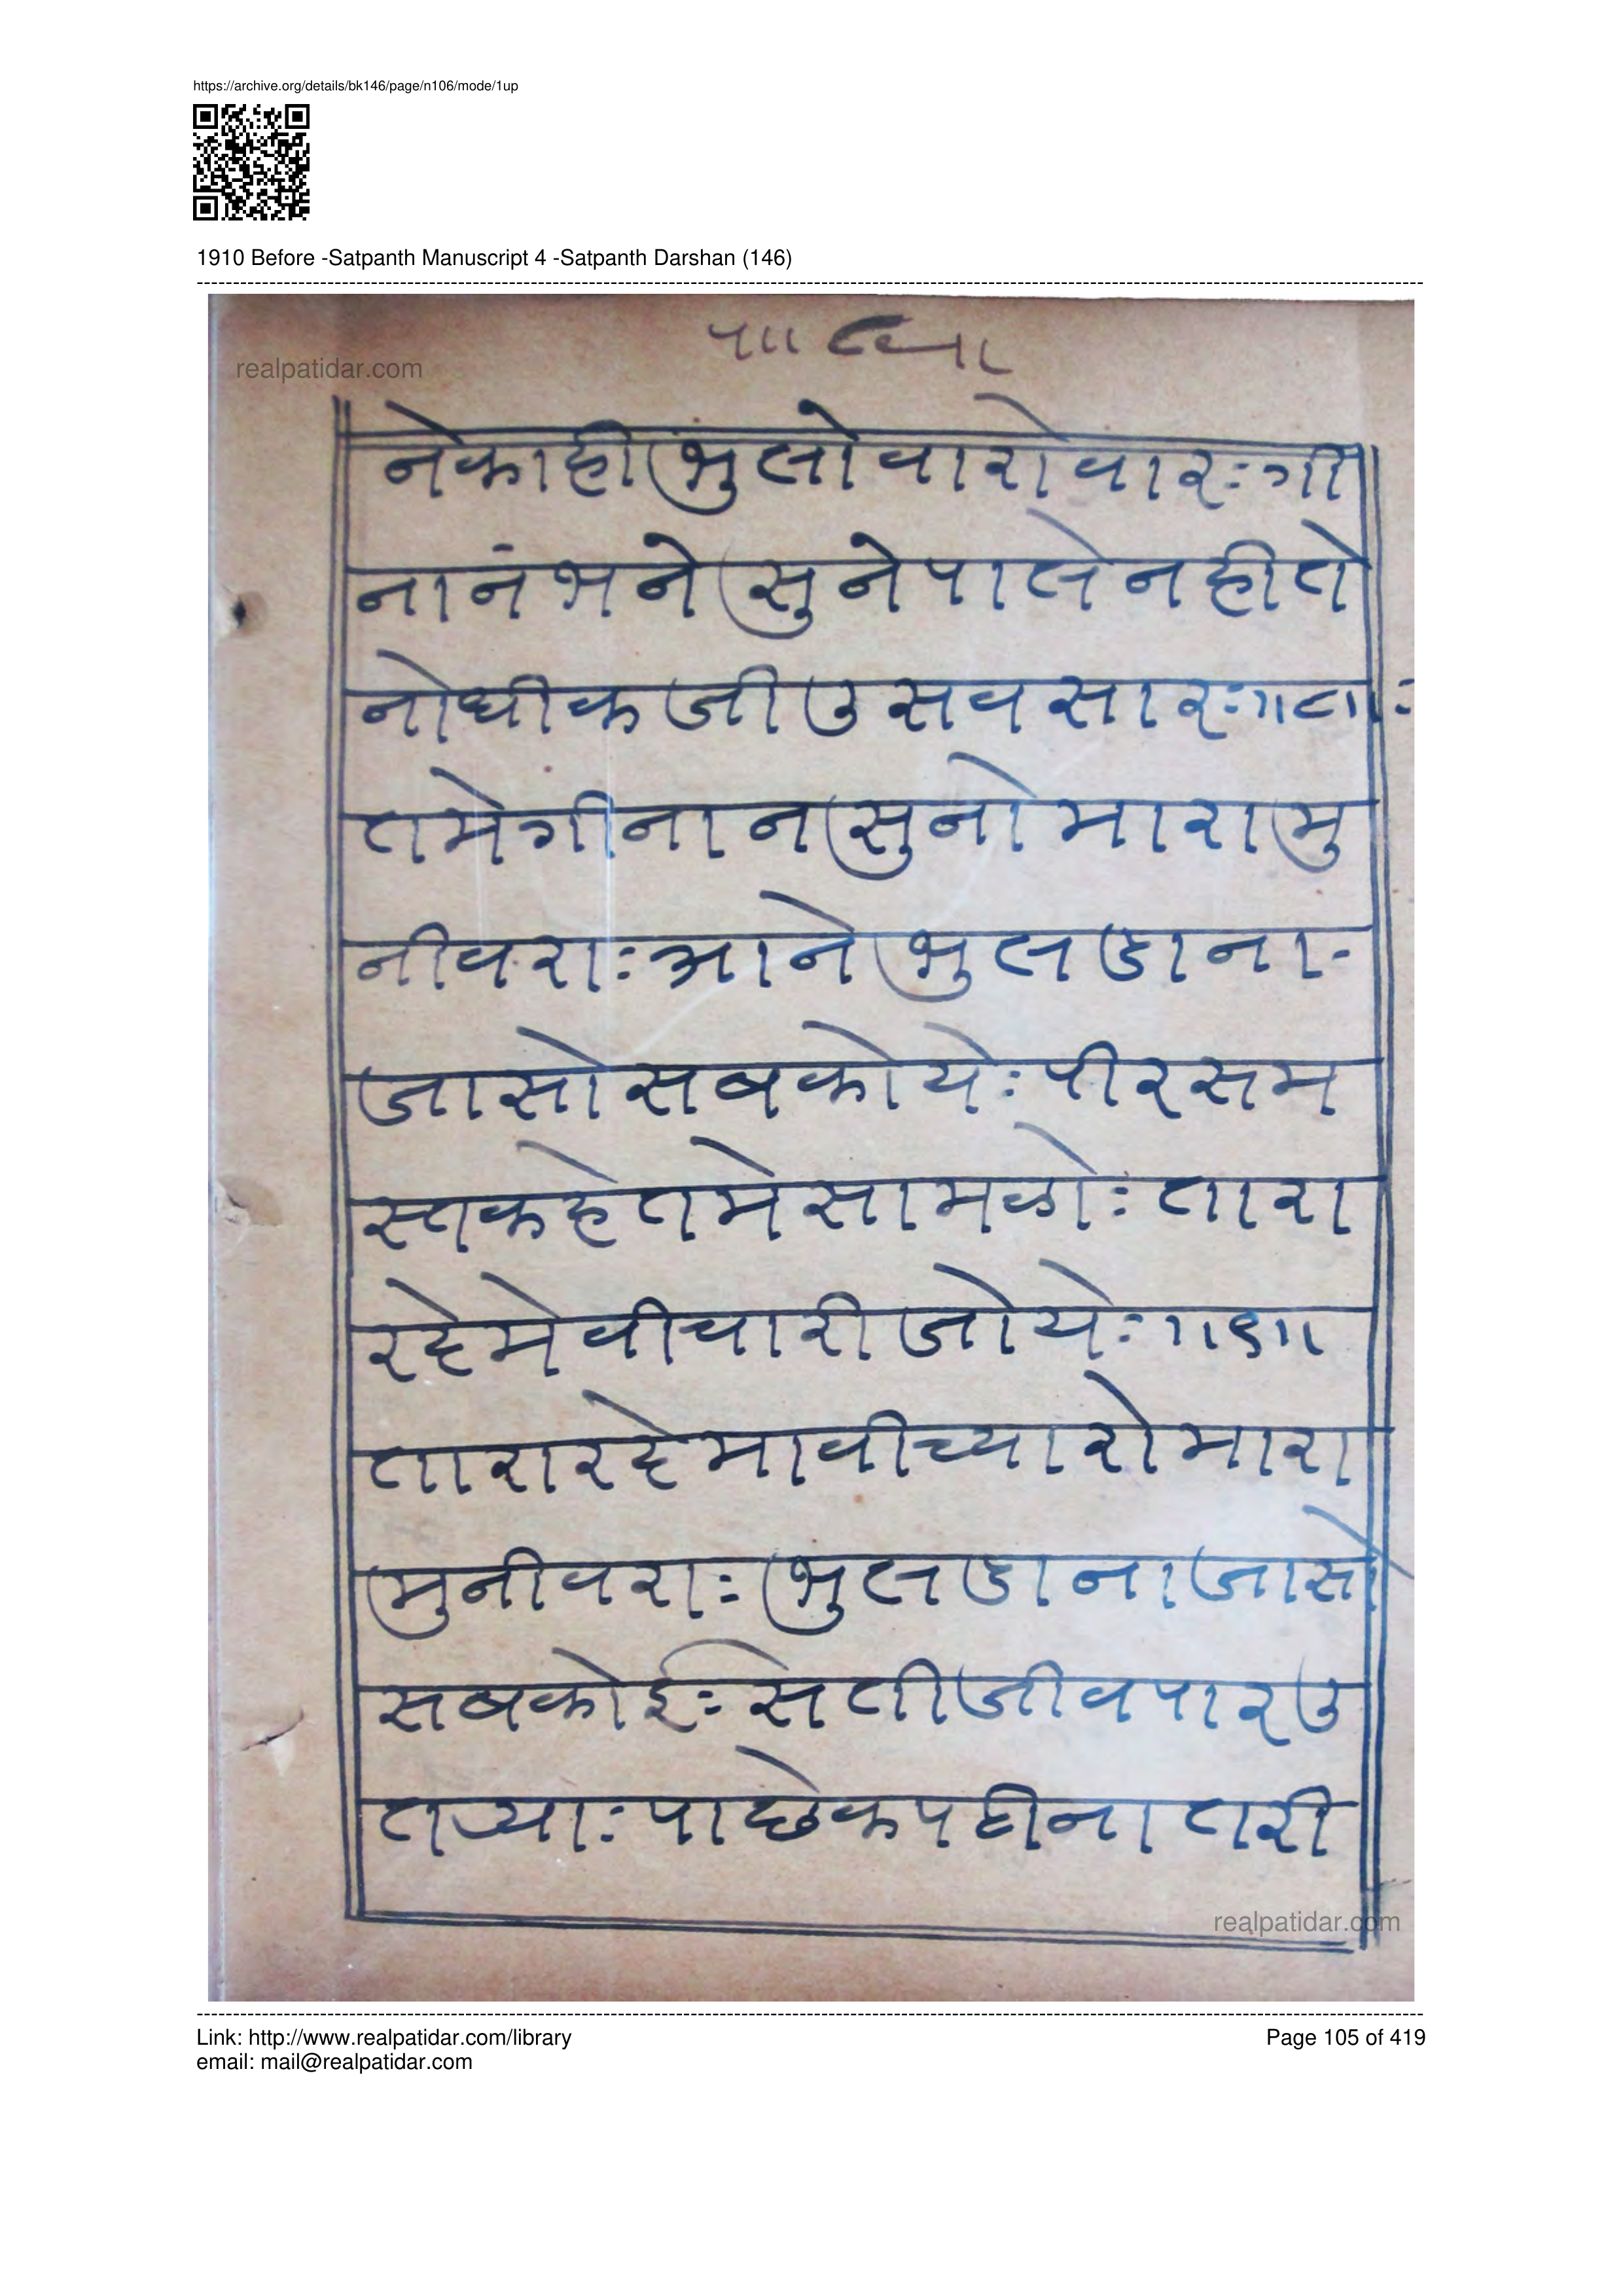 https://archive.org/details/bk146/page/n106/mode/1up
1910 Before -Satpanth Manuscript 4 -Satpanth Darshan (146)
realpatidar.com
नेकाही भुलोवारोवारः गी
नानंभने सुनेपाले नहीते
नोधीक जीउ सवसारः॥८॥ः
तमेगीनान सुनो मारा मु
नीवराः आने भुलडाना-
जासो सबकोयेः पीरसम
स्तकहे तमे सामळोः तारा
रहेमे वीचारी जोयेः ॥९॥
तारा रहेमा वीच्यारो मारा
मुनीवराः भुलडाना जासो
सबकोईः सेती जीवपार उ
तऱ्याः पाछे कपटीना तरी
realpatidar.com
Link: http://www.realpatidar.com/library
Page 105 of 419
email: mail@realpatidar.com